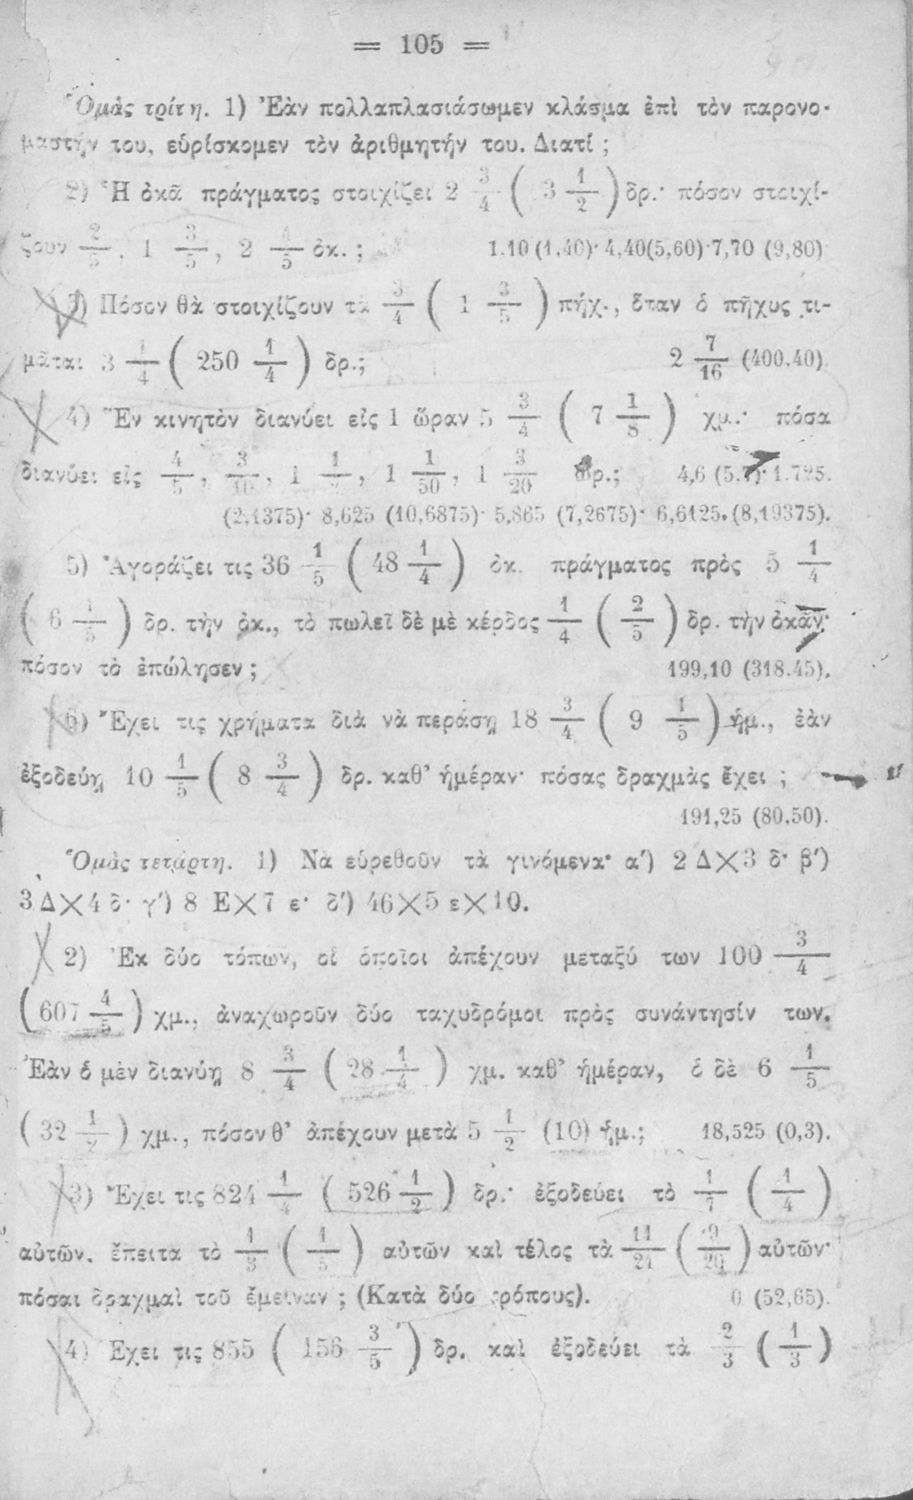 = 105 =
Ὁμὰς τρίτη. 1) Ἐὰν πολλαπλασιάσωμεν κλάσμα ἐπὶ τὸν παρονο-
μαστήν του, εὑρίσκομεν τὸν ἀριθμητήν του. Διατί ;
2) Ἡ ὀκᾶ πράγματος στοιχίζει 2 3/4 ( 3 1/2 ) δρ.· πόσον στοιχί-
ζουν 2/5, 1 3/5, 2 4/5 ὀκ. ; 1.10 (1,40)· 4,40(5,60)·7,70 (9,80)
3) Πόσον θὰ στοιχίζουν τὰ 3/4 ( 1 3/5 ) πήχ., ὅταν ὁ πῆχυς τι-
μᾶται 3 1/4 ( 250 1/4 ) δρ.; 2 7/16 (400.40).
4) Ἓν κινητὸν διανύει εἰς 1 ὥραν 5 3/4 ( 7 1/8 ) χμ.· πόσα
διανύει εἰς 4/5, 3/10, 1 1/2, 1 1/50, 1 3/20 ὡρ.; 4,6 (5.7)· 1.725.
(2,1375)· 8,625 (10,6875)· 5,865 (7,2675)· 6,6125. (8,19375).
5) Ἀγοράζει τις 36 1/5 ( 48 1/4 ) ὀκ. πράγματος πρὸς 5 1/4
( 6 1/5 ) δρ. τὴν ὀκ., τὸ πωλεῖ δὲ μὲ κέρδος 1/4 ( 2/5 ) δρ. τὴν ὀκᾶν·
πόσον τὸ ἐπώλησεν ; 199,10 (318.45).
6) Ἔχει τις χρήματα διὰ νὰ περάσῃ 18 3/4 ( 9 1/5 ) ἡμ., ἐὰν
ἐξοδεύῃ 10 1/5 ( 8 3/4 ) δρ. καθ' ἡμέραν· πόσας δραχμὰς ἔχει ;
191,25 (80,50).
Ὁμὰς τετάρτη. 1) Νὰ εὑρεθοῦν τὰ γινόμενα· α') 2 Δ×3 δ· β')
3 Δ×4 δ· γ') 8 Ε×7 ε· δ') 46×5 ε×10.
2) Ἐκ δύο τόπων, οἱ ὁποῖοι ἀπέχουν μεταξύ των 100 3/4
( 607 4/5 ) χμ., ἀναχωροῦν δύο ταχυδρόμοι πρὸς συνάντησίν των.
Ἐὰν ὁ μὲν διανύῃ 8 3/4 ( 28 1/4 ) χμ. καθ' ἡμέραν, ὁ δὲ 6 1/5
( 32 1/2 ) χμ., πόσον θ' ἀπέχουν μετὰ 5 1/2 (10) ἡμ.; 18,525 (0,3).
3) Ἔχει τις 824 1/4 ( 526 1/2 ) δρ.· ἐξοδεύει τὸ 1/7 ( 1/4 )
αὐτῶν. ἔπειτα τὸ 1/3 ( 1/5 ) αὐτῶν καὶ τέλος τὰ 11/21 ( 9/20 ) αὐτῶν·
πόσαι δραχμαὶ τοῦ ἔμειναν ; (Κατὰ δύο τρόπους). 0 (52,65).
4) Ἔχει τις 855 ( 156 3/5 ) δρ. καὶ ἐξοδεύει τὰ 2/3 ( 1/3 )